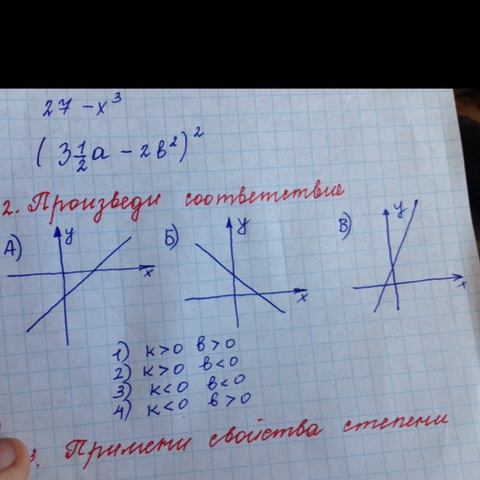 27 - x³
(3 1/2 a - 2в²)²
2. Произведи соответствие
А) y x
Б) y x
В) y x
1) к>0 в>0
2) к>0 в<0
3) к<0 в<0
4) к<0 в>0
3. Примени свойства степени